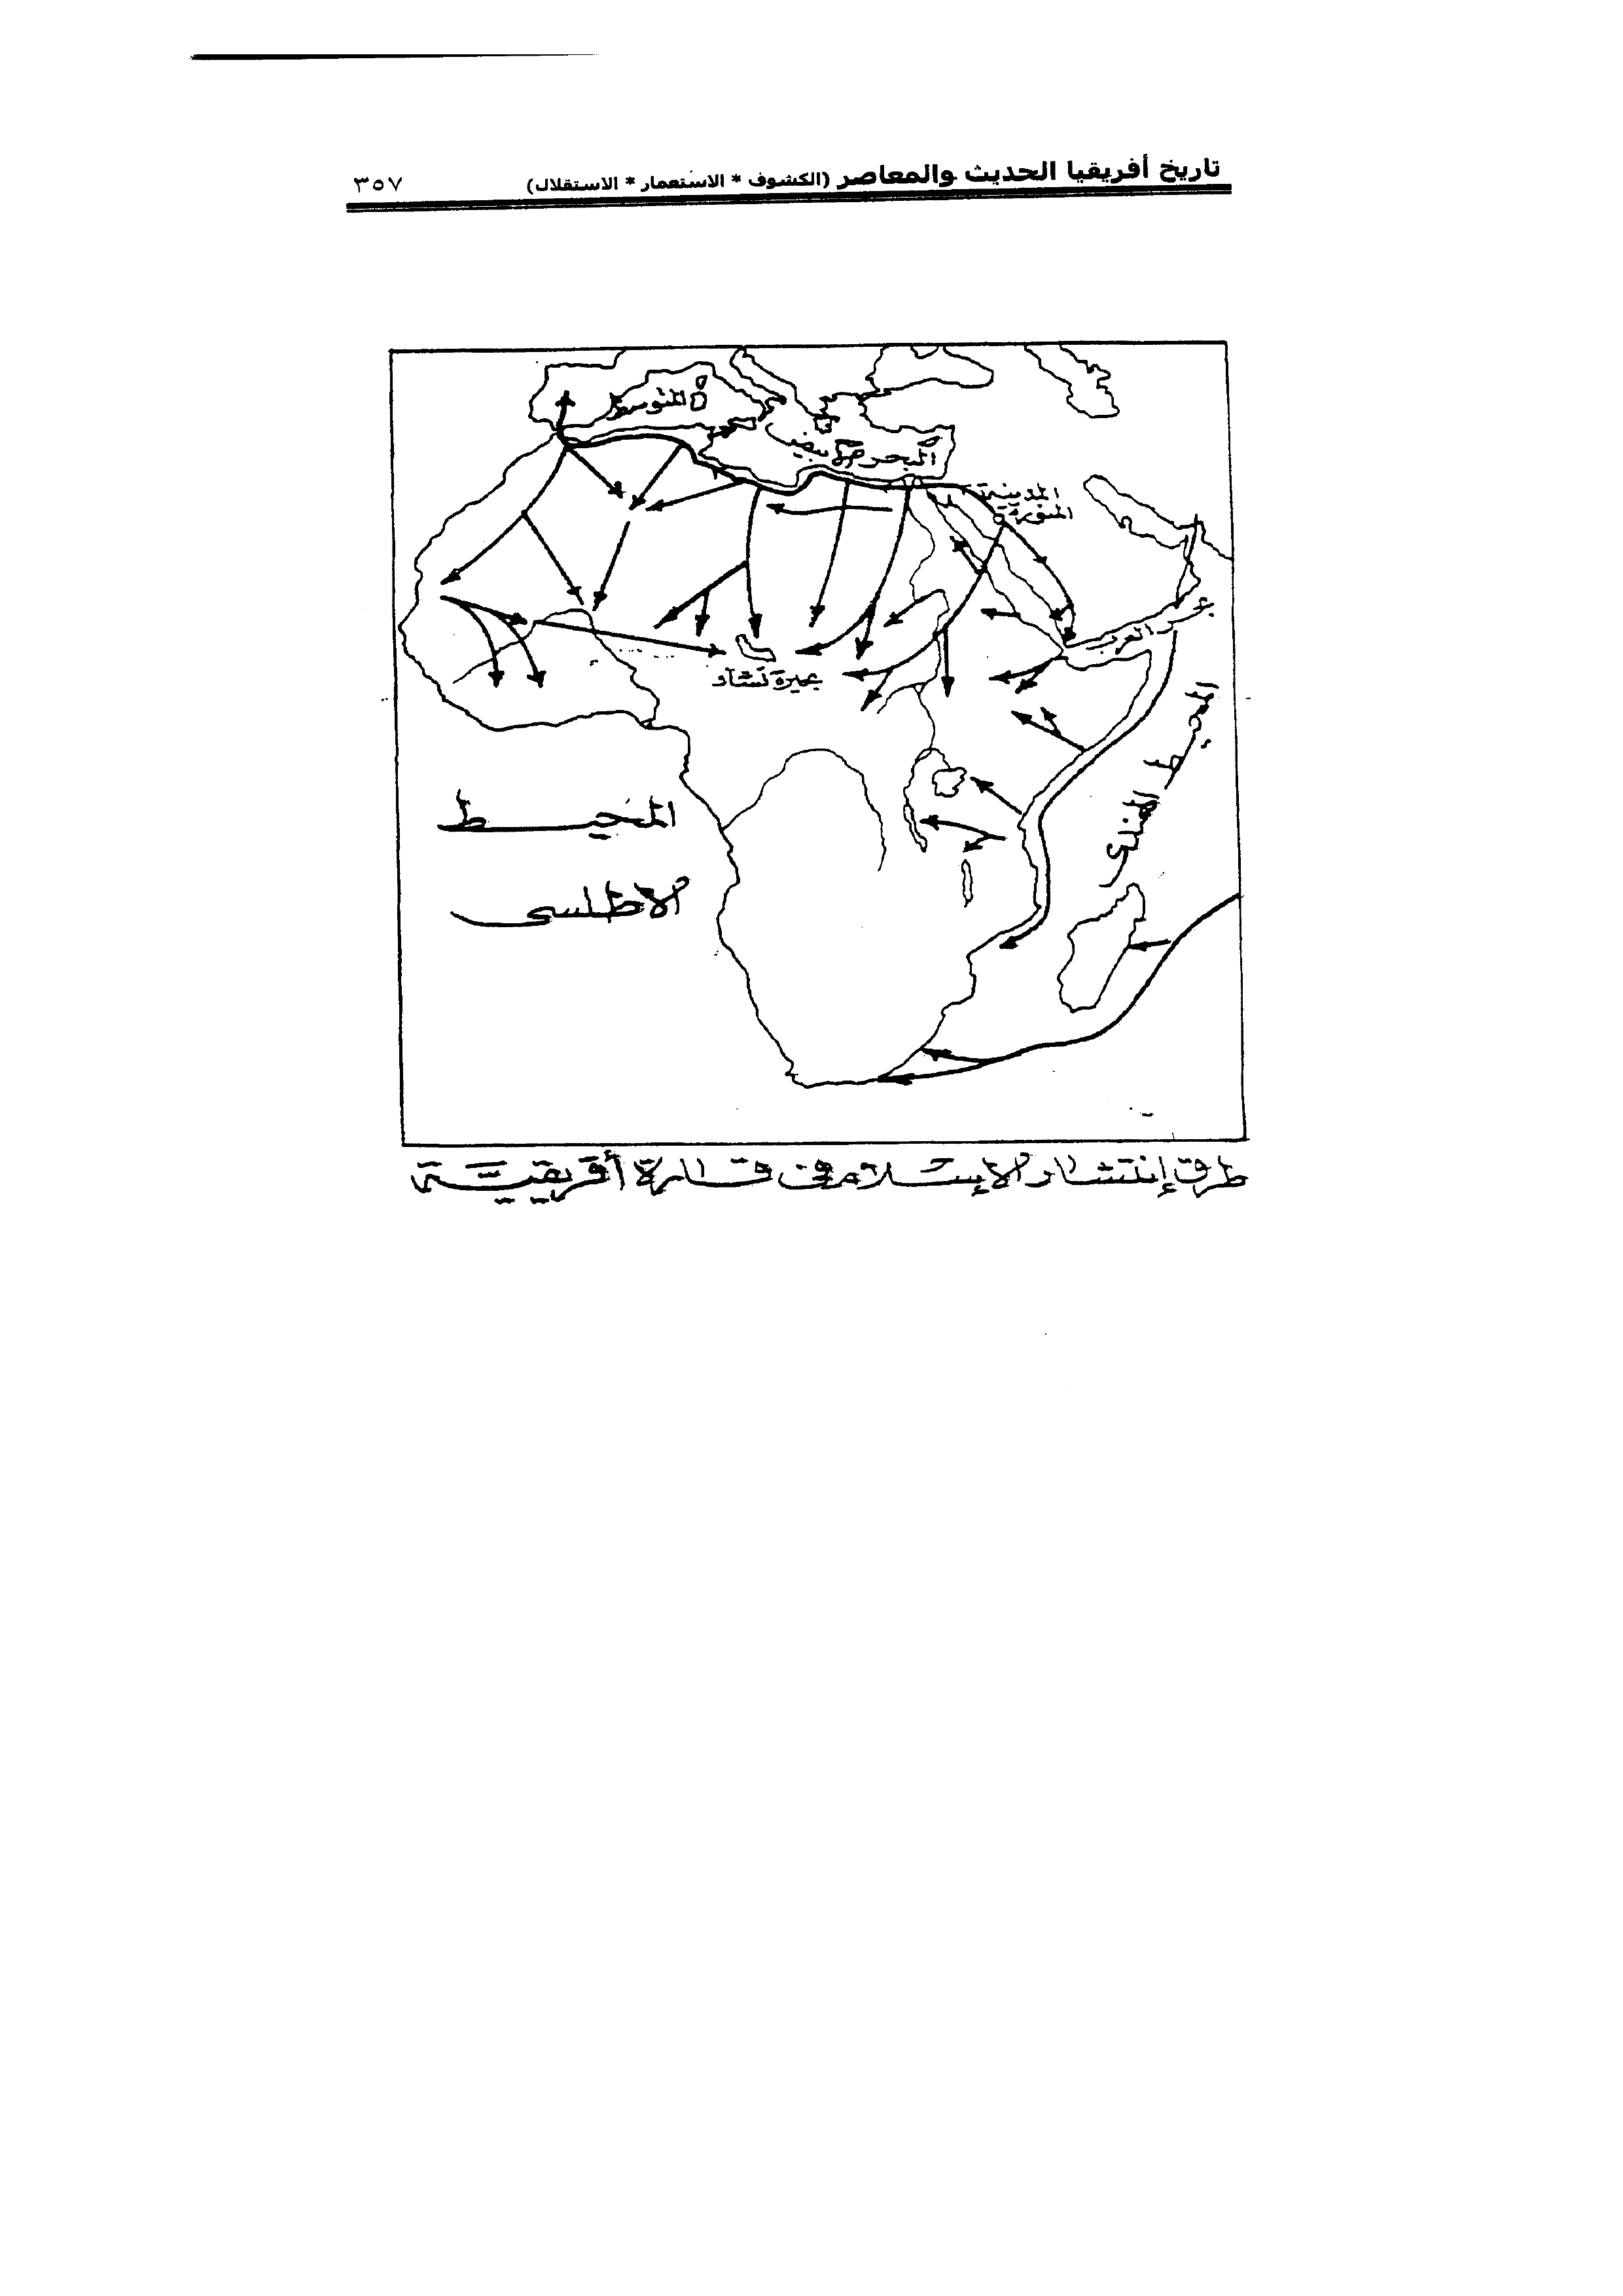 تاريخ أفريقيا الحديث والمعاصر (الكشوف * الاستعمار * الاستقلال) ٣٥٧
المتوسط
البحر الأبيض
المدينة
المنورة
بحر العرب
بحيرة تشاد
المحيط الهندى
المحيط
الأطلسى
طرق إنتشار الإسلام فى قارة أفريقية